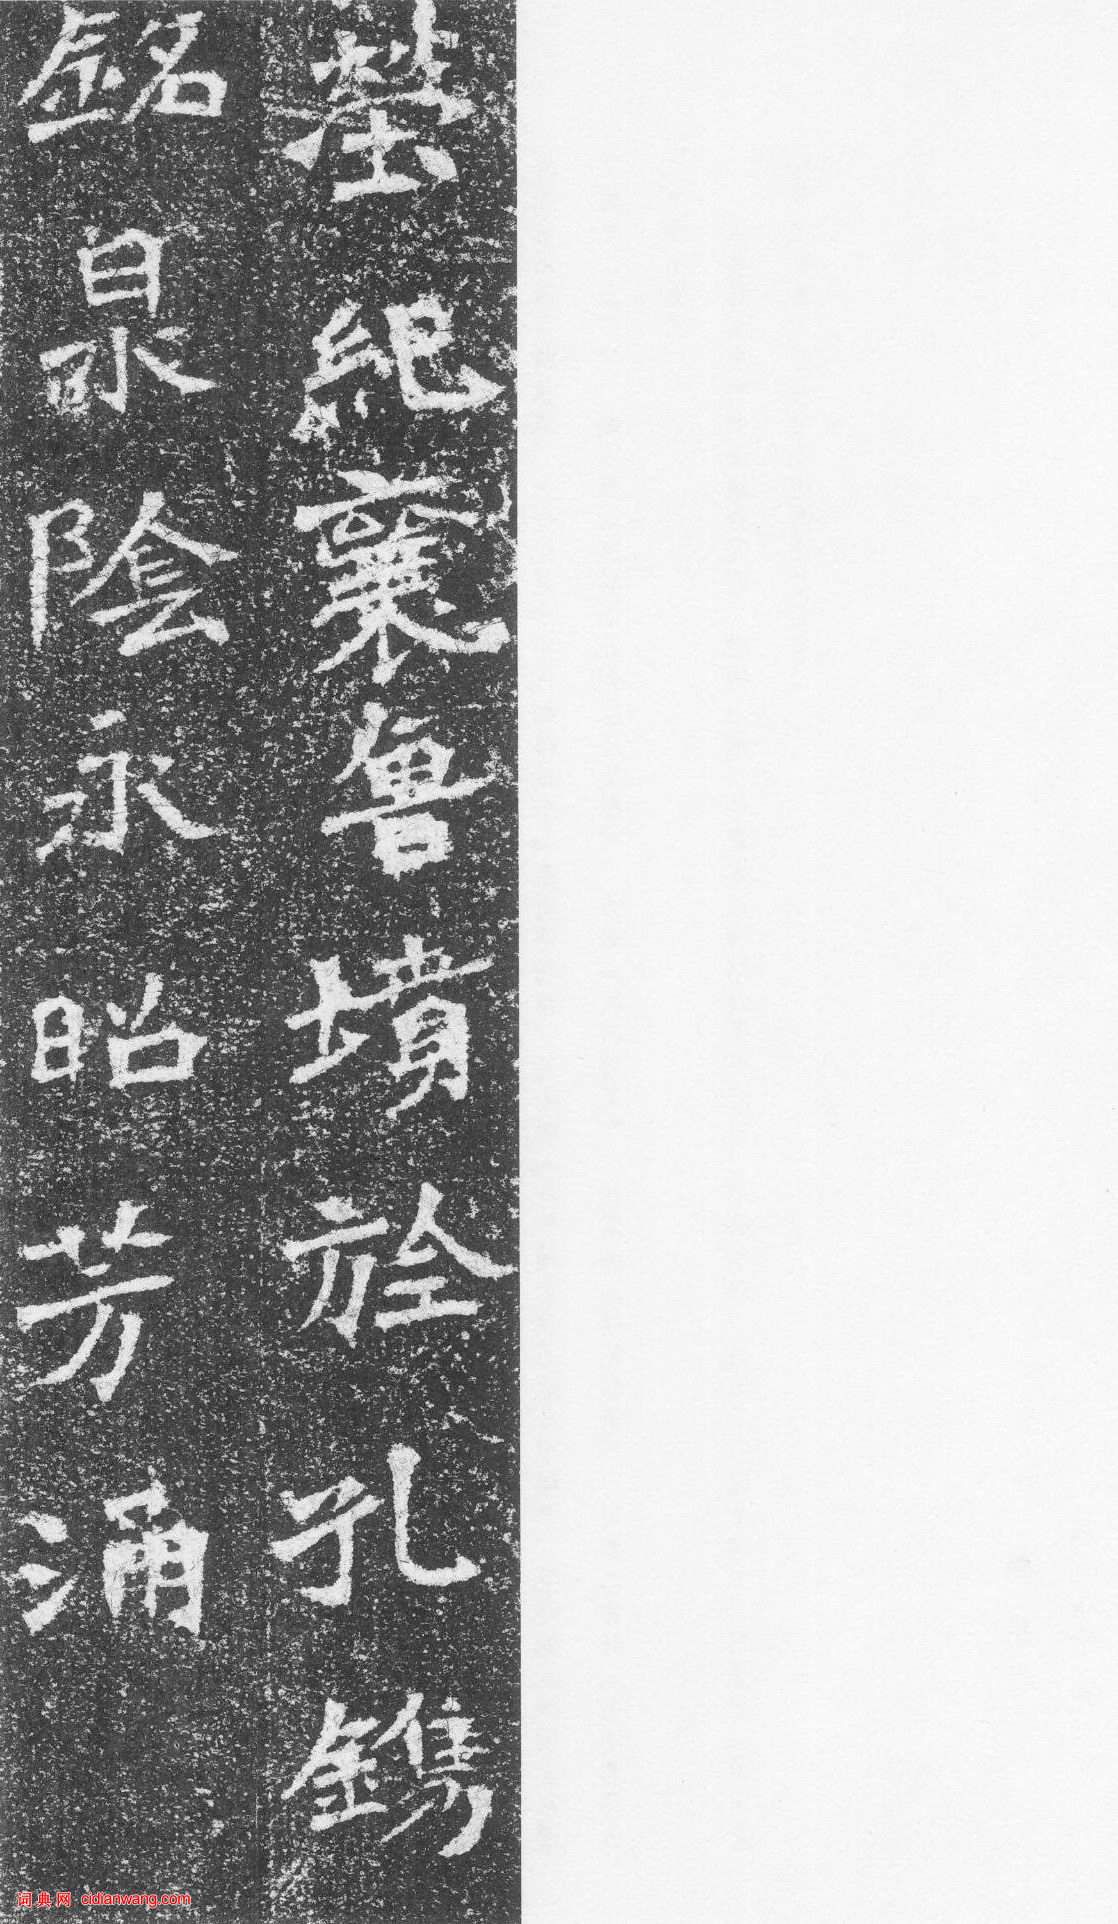 墓紀襄魯墳於孔鐫
銘泉陰永昭芳涌
词典网 cidianwang.com